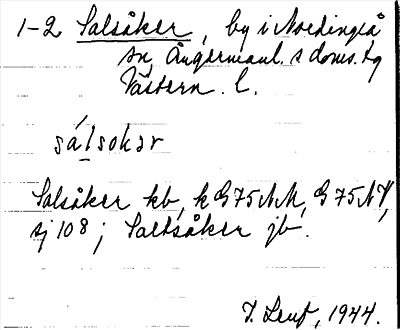 1-2 Salsåker, by i Nordingrå
sn, Ångermanl. s doms. tg
Västern. l.
sálsokər
Salsåker kb, k G75NM, G75NV,
sj 108; Saltsåker jb.
1944.